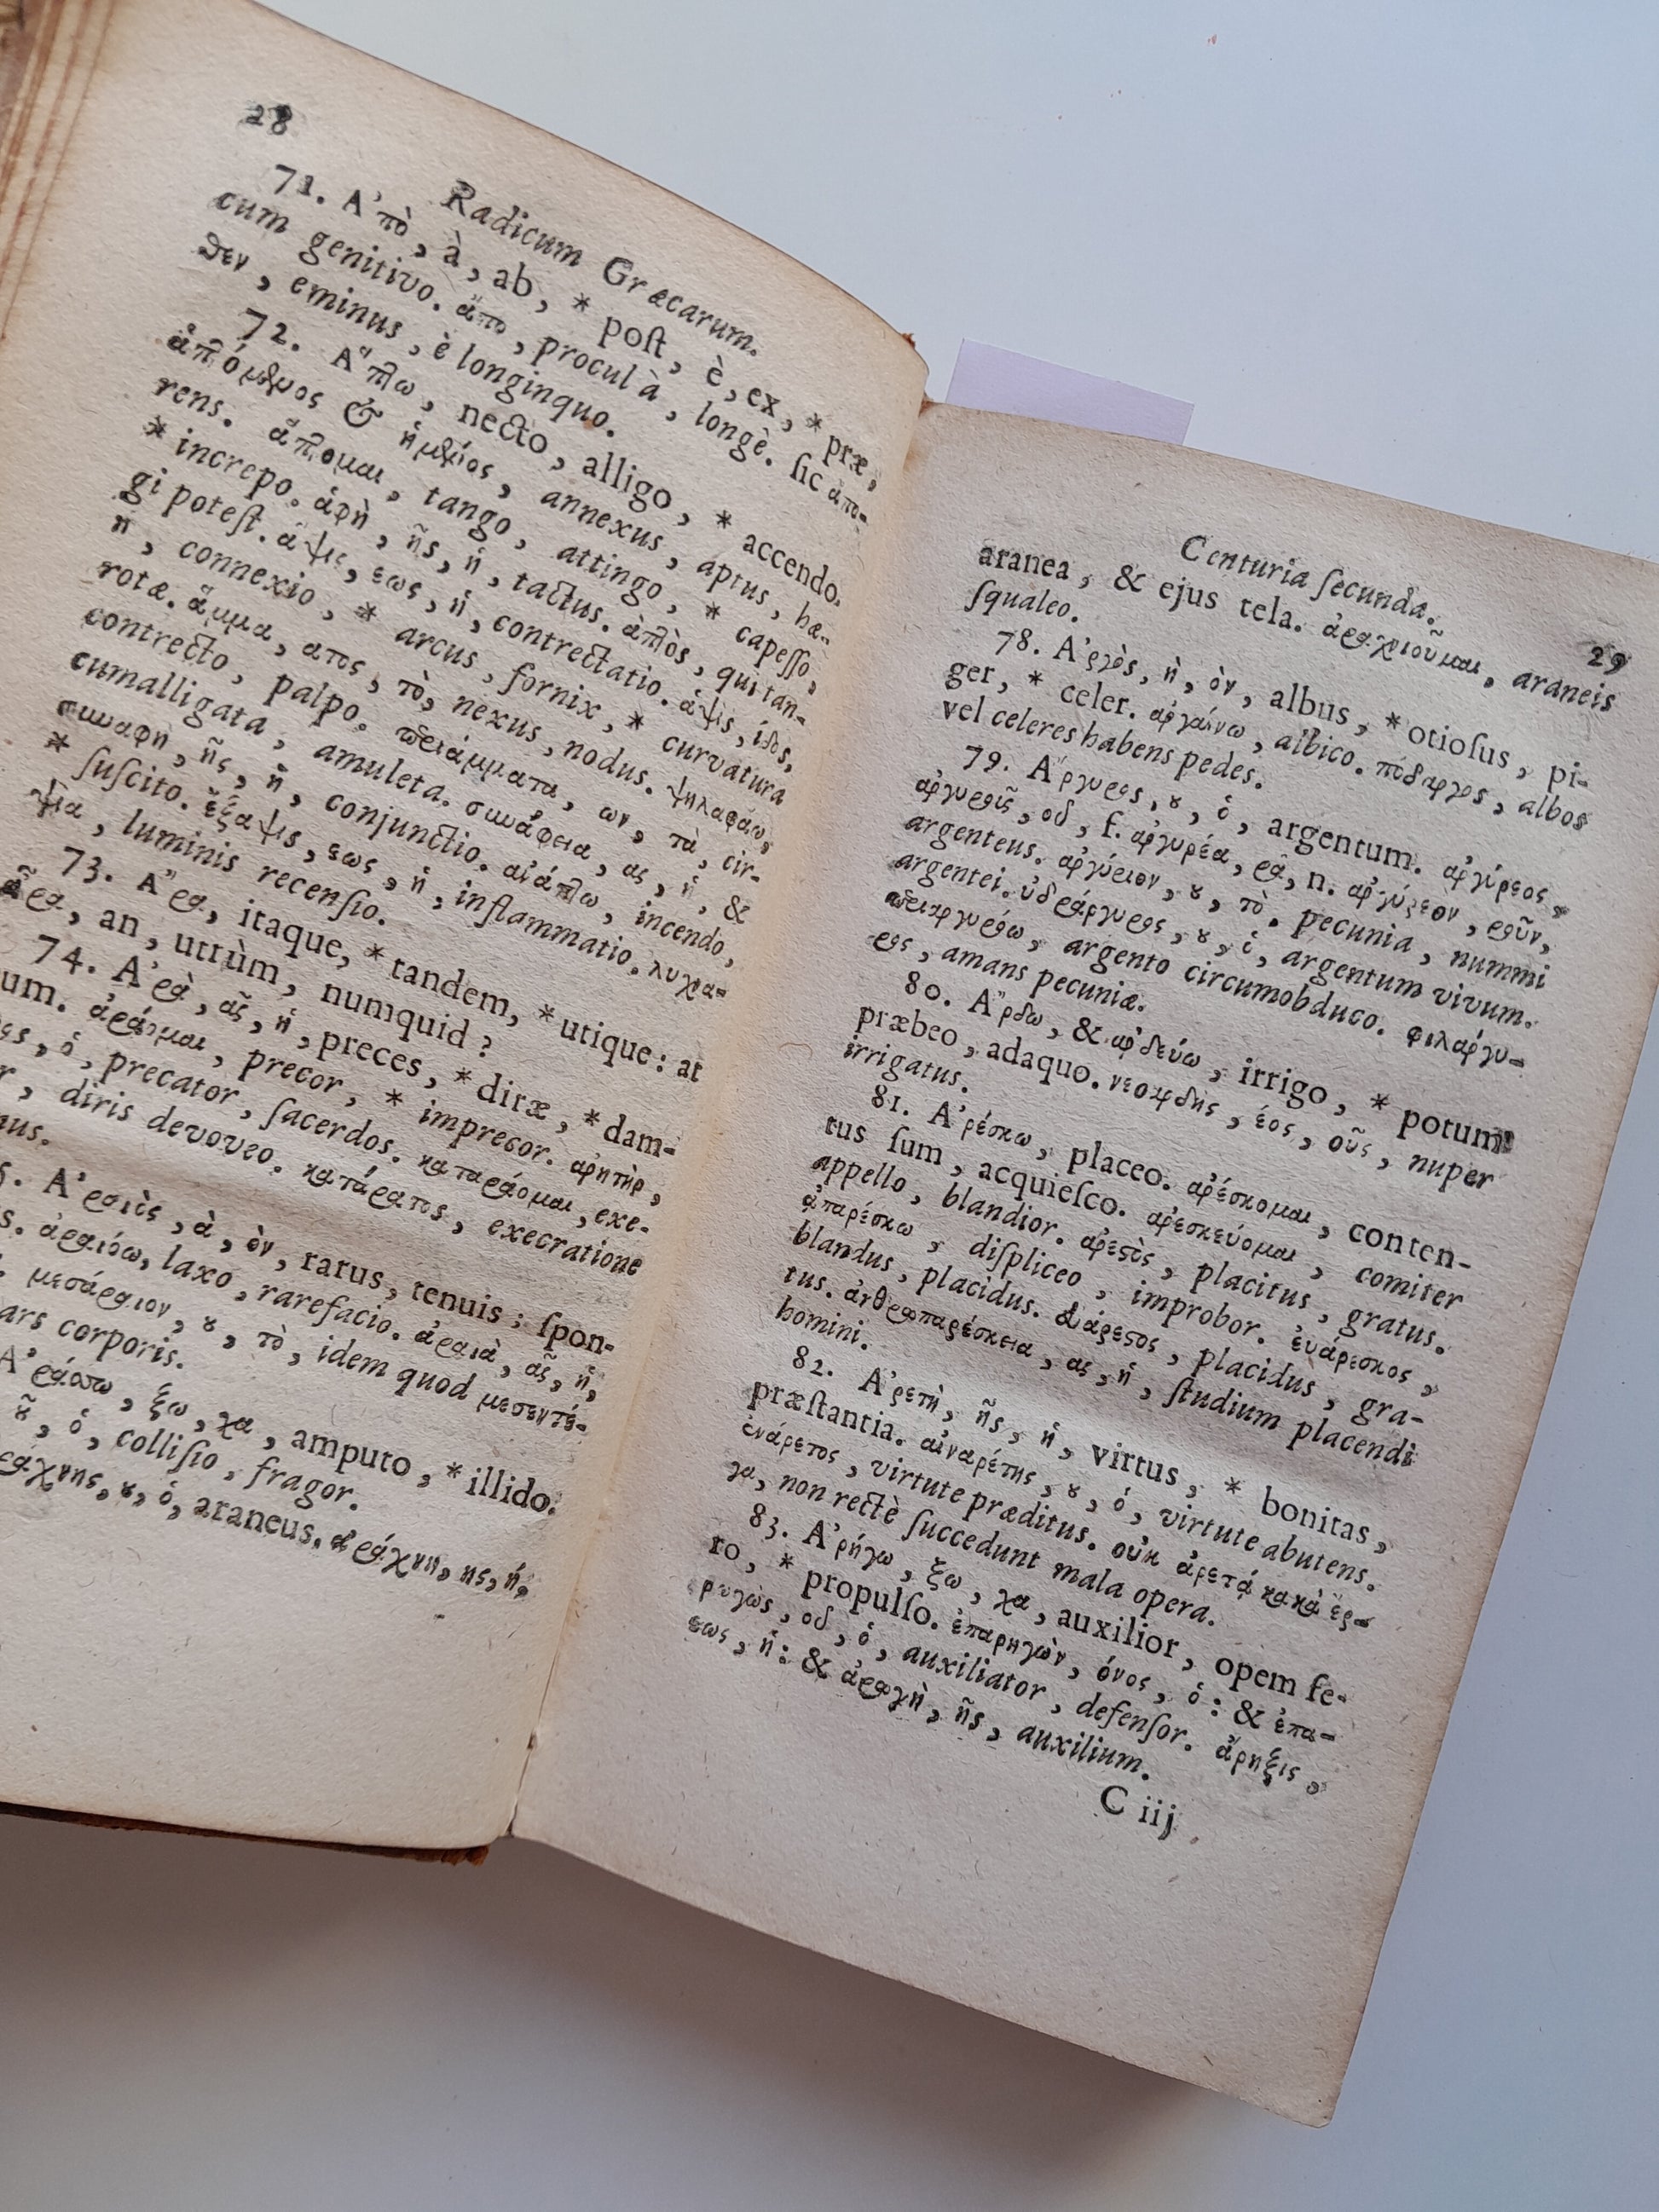 28
Radicum Græcarum.
71. Ἀπὸ, à, ab, * poſt, è, ex, * præ,
cum genitivo. ἄπο, procul à, longè. ſic ἀπο-
θεν, eminus, è longinquo.
72. Ἅπτω, necto, alligo, * accendo.
& annexus, aptus, hæ-
rens. ἅπτομαι, tango, attingo, * capeſſo,
* increpo. ἁφὴ, ῆς, ἡ, tactus. ἁπτὸς, qui tan-
gi poteſt. ἅψις, εως, ἡ, contrectatio. ἁψὶς, ίδος,
ἡ, connexio, * arcus, fornix, * curvatura
rotæ. ἅμμα, ατος, τὸ, nexus, nodus. ψηλαφάω,
contrecto, palpo. περιάμματα, ων, τὰ, cir-
cumalligata, amuleta. συνάφεια, ας, ἡ, &
συναφὴ, ῆς, ἡ, conjunctio. ἀνάπτω, incendo,
* ſuſcito. ἔξαψις, εως, ἡ, inflammatio. λυχνα-
ψία, luminis recenſio.
73. Ἄρα, itaque, * tandem, * utique: at
ἆρα, an, utrùm, numquid?
74. Ἀρὰ, ᾶς, ἡ, preces, * diræ, * dam-
um. ἀράομαι, precor, * imprecor. ἀρητὴρ,
ρος, ὁ, precator, ſacerdos. καταράομαι, exe-
r, diris devoveo. κατάρατος, execratione
nus.
5. Ἀραιὸς, ὰ, ὸν, rarus, tenuis; ſpon-
s. ἀραιόω, laxo, rarefacio. ἀραιὰ, ᾶς, ἡ,
. μεσάραιον, ου, τὸ, idem quod μεσεντέ-
ars corporis.
Ἀράσσω, ξω, χα, amputo, * illido.
οῦ, ὁ, colliſio, fragor.
ράχνης, ου, ὁ, araneus. ἀράχνη, ης, ἡ,
Centuria ſecunda.
29
aranea, & ejus tela. ἀραχνιοῦμαι, araneis
ſqualeo.
78. Ἀργὸς, ὴ, ὸν, albus, * otioſus, pi-
ger, * celer. ἀργαίνω, albico. πόδαργος, albos
vel celeres habens pedes.
79. Ἄργυρος, ου, ὁ, argentum. ἀργύρεος,
ἀργυροῦς, οῦ, f. ἀργυρέα, ρᾶ, n. ἀργύρεον, ροῦν,
argenteus. ἀργύριον, ου, τὸ, pecunia, nummi
argentei. ὑδράργυρος, ου, ὁ, argentum vivum.
περιαργυρόω, argento circumobduco. φιλάργυ-
ρος, amans pecuniæ.
80. Ἄρδω, & ἀρδεύω, irrigo, * potum
præbeo, adaquo. νεοαρδὴς, έος, οῦς, nuper
irrigatus.
81. Ἀρέσκω, placeo. ἀρέσκομαι, conten-
tus ſum, acquieſco. ἀρεσκεύομαι, comiter
appello, blandior. ἀρεστὸς, placitus, gratus.
ἀπαρέσκω, diſpliceo, improbor. εὐάρεσκος,
blandus, placidus. εὐάρεστος, placidus, gra-
tus. ἀνθρωπαρέσκεια, ας, ἡ, ſtudium placendi
homini.
82. Ἀρετὴ, ῆς, ἡ, virtus, * bonitas,
præſtantia. αἰναρέτης, ου, ὁ, virtute abutens.
ἐνάρετος, virtute præditus. οὐκ ἀρετᾷ κακὰ ἔρ-
γα, non rectè ſuccedunt mala opera.
83. Ἀρήγω, ξω, χα, auxilior, opem fe-
ro, * propulſo. ἐπαρηγὼν, όνος, ὁ: & ἐπα-
ρωγὸς, οῦ, ὁ, auxiliator, defenſor. ἄρηξις,
εως, ἡ: & ἀρωγὴ, ῆς, auxilium.
C iij